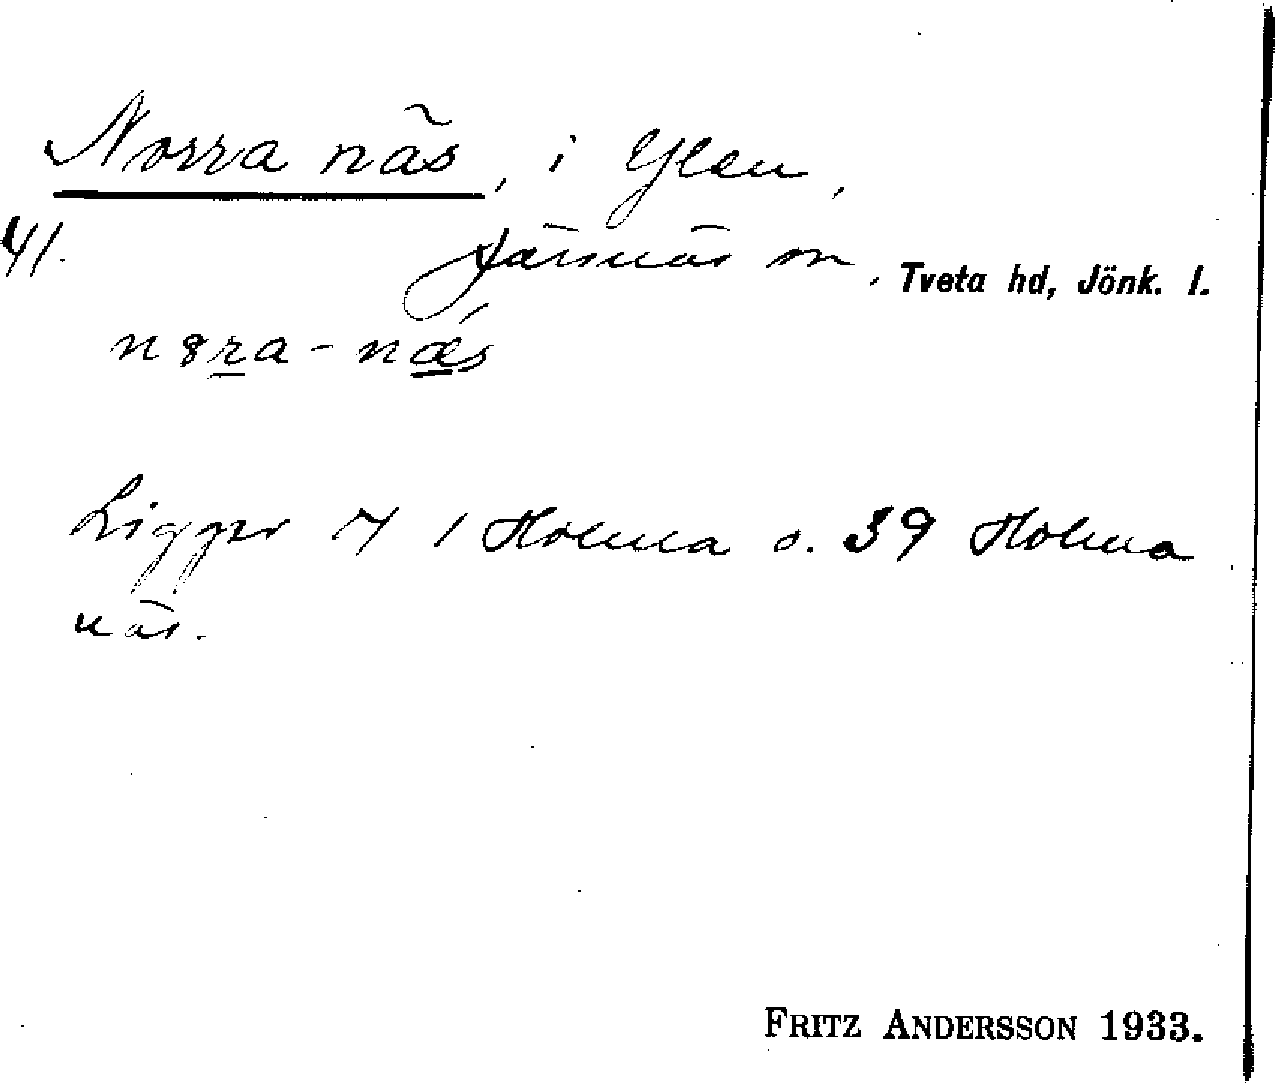 Norra näs, i Ylen,
41.
Järsnäs sn, Tveta hd, Jönk. l.
n8ra-næ´s
Ligger i 1 Holma o. 39 Holma
näs.
FRITZ ANDERSSON 1933.